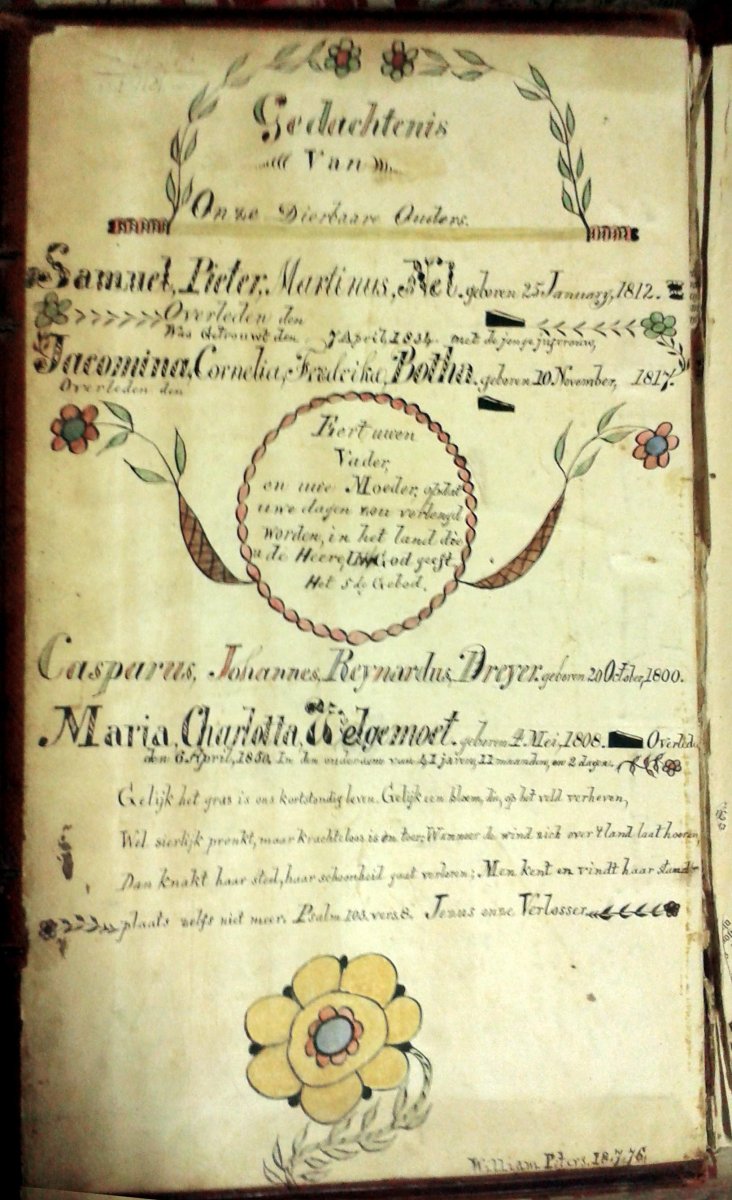 Gedachtenis
Van
Onze Dierbaare Ouders.
Samuel, Pieter, Martinus, Nel. geboren 25 January, 1812.
Overleden den
Was Getrouwt den 7 April, 1834. met de jonge juferouw,
Jacomina, Cornelia, Fredrika, Botha. geboren 10 November, 1817.
Overleden den
Eert uwen
Vader,
en uwe Moeder, opdat
uwe dagen zou verlengd
worden, in het land die
u de Heere, UW God geeft.
Het 5de Gebod.
Casparus, Johannes, Reynardus, Dreyer. geboren 20 October, 1800.
Maria, Charlotta, Welgemoet. geboren 4 Mei, 1808. Overled
den 6 April, 1850, In den ouderdom van 41 jaeren, 11 maanden, en 2 dagen.
Gelijk het gras is ons kortstondig leven. Gelijk een bloem, die, op het veld verheven,
Wel sierlijk pronkt, maar krachteloos is en teer; Wanneer de wind zich over 't land laat hooren,
Dan knakt haar steel, haar schoonheid gaat verloren; Men kent en vindt haar stand-
plaats zelfs niet meer. Psalm 103. vers. 8. Jezus onze Verlosser
William Peters. 18.7.76.